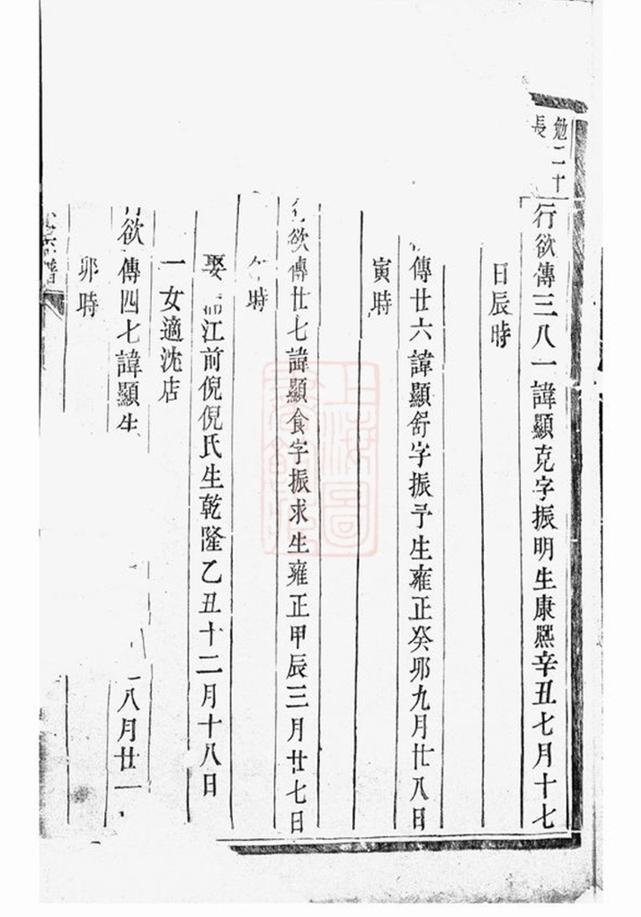 勉二十
長
行欲傳三八一諱顯克字振明生康熈辛丑七月十七
日辰時
傳廿六諱顯舒字振予生雍正癸夘九月廿八日
寅時
欲傳廿七諱顯食字振求生雍正甲辰三月廿七日
時
娶江前倪倪氏生乾隆乙丑十二月十八日
一女適沈店
欲傳四七諱顯生八月廿一
夘時
宗譜
上海圖